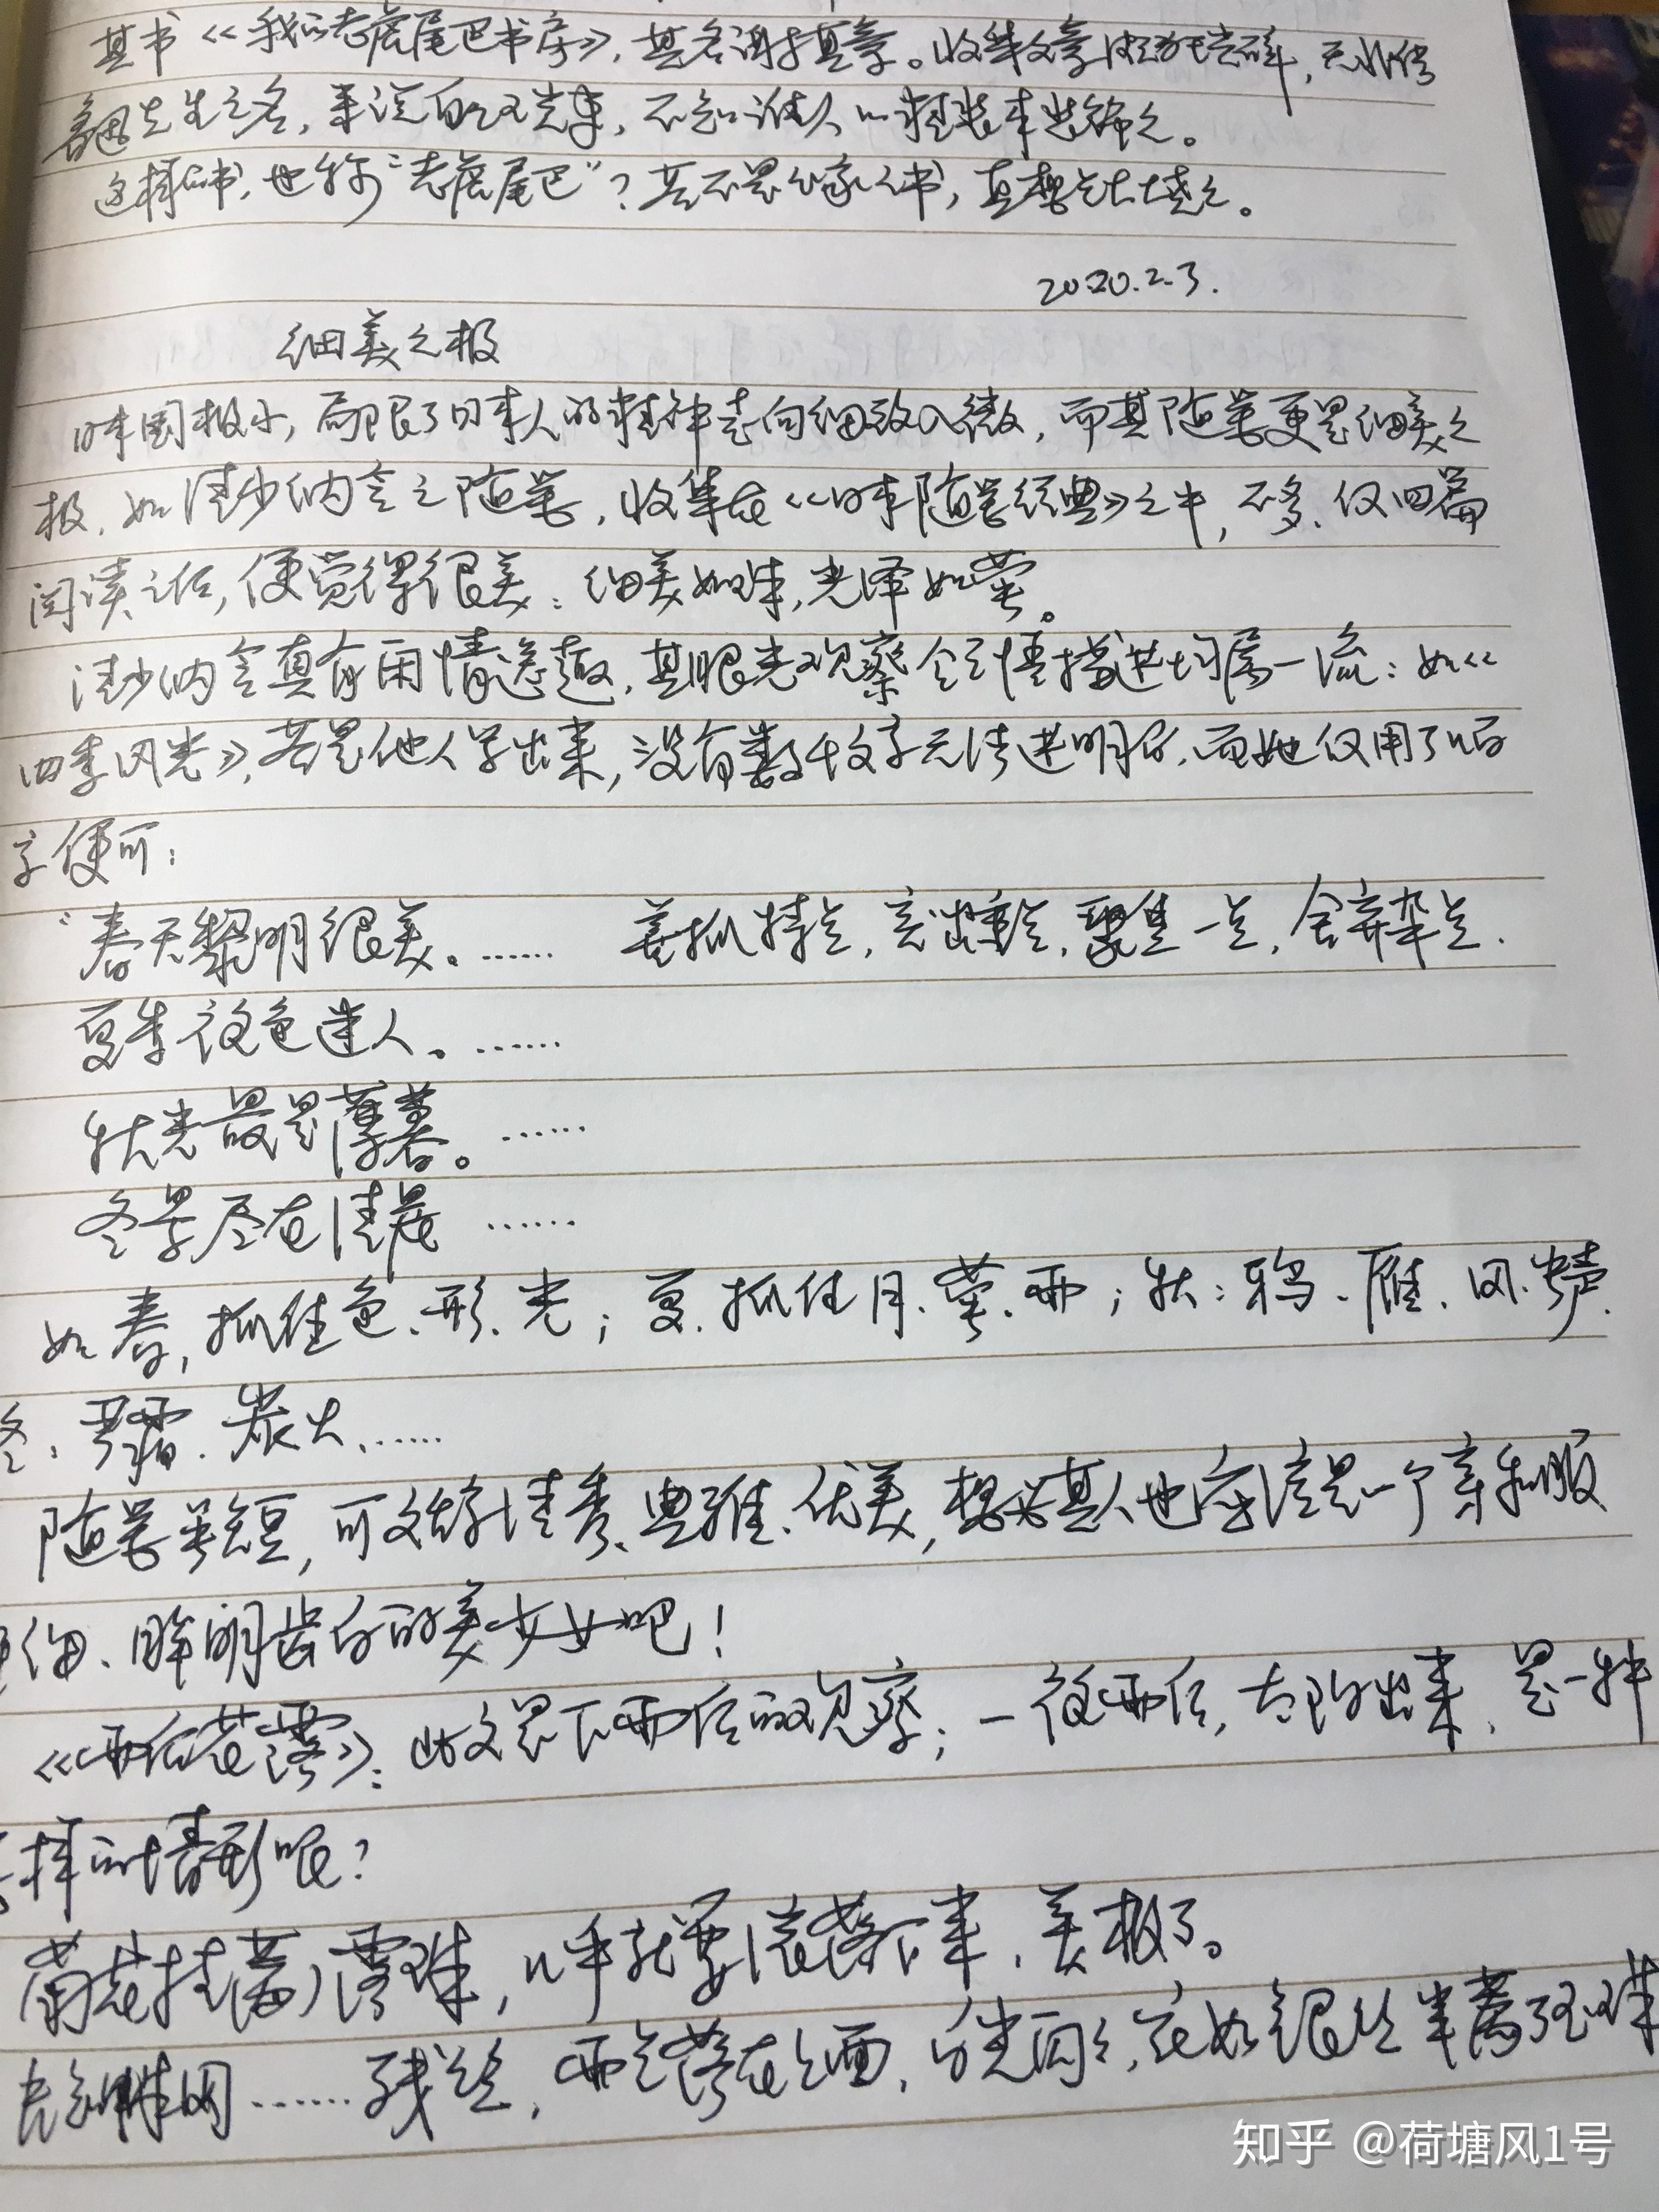 其书《我的老虎尾巴书房》，其名谓于其章。收集文章
鲁迅先生之名，
这样的书，也称“老虎尾巴”？若不是公家之书，真想点火烧之。
2020.2.3.
细美之极
日本国极小，局限了日本人的精神走向细致入微，而其随笔更是细美之
极。如清少纳言之随笔，收集在《日本随笔经典》之中，不多，仅四篇
阅读之后，便觉得很美：细美如珠，光泽如萤。
清少纳言真有闲情逸趣，其眼光观察 描述均属一流：如《
四季风光》，若是他人写出来，没有数千文字无法述明白，而她仅用了几百
字便可：
“春天黎明很美。…… 善抓特点，突出重点，聚焦一点，舍弃杂点。
夏季夜色迷人。……
秋光最是薄暮。……
冬景尽在清晨……
如春，抓住色、形、光；夏、抓住月、萤、雨；秋：鸦、雁、风、声。
冬：雪霜、炭火……
随笔虽短，可文字清秀、典雅、优美，想必其人也应该是一个亲和
细、眸明齿白的美少女吧！
《雨后花露》：此文是下雨后的观察；一夜雨后，太阳出来，是一种
样的情形呢？
菊花挂满了露珠，几乎就要滚落下来，美极了。
网……残丝，雨点落在上面，白光闪闪，宛如银丝串着了玉珠
知乎 @荷塘风1号